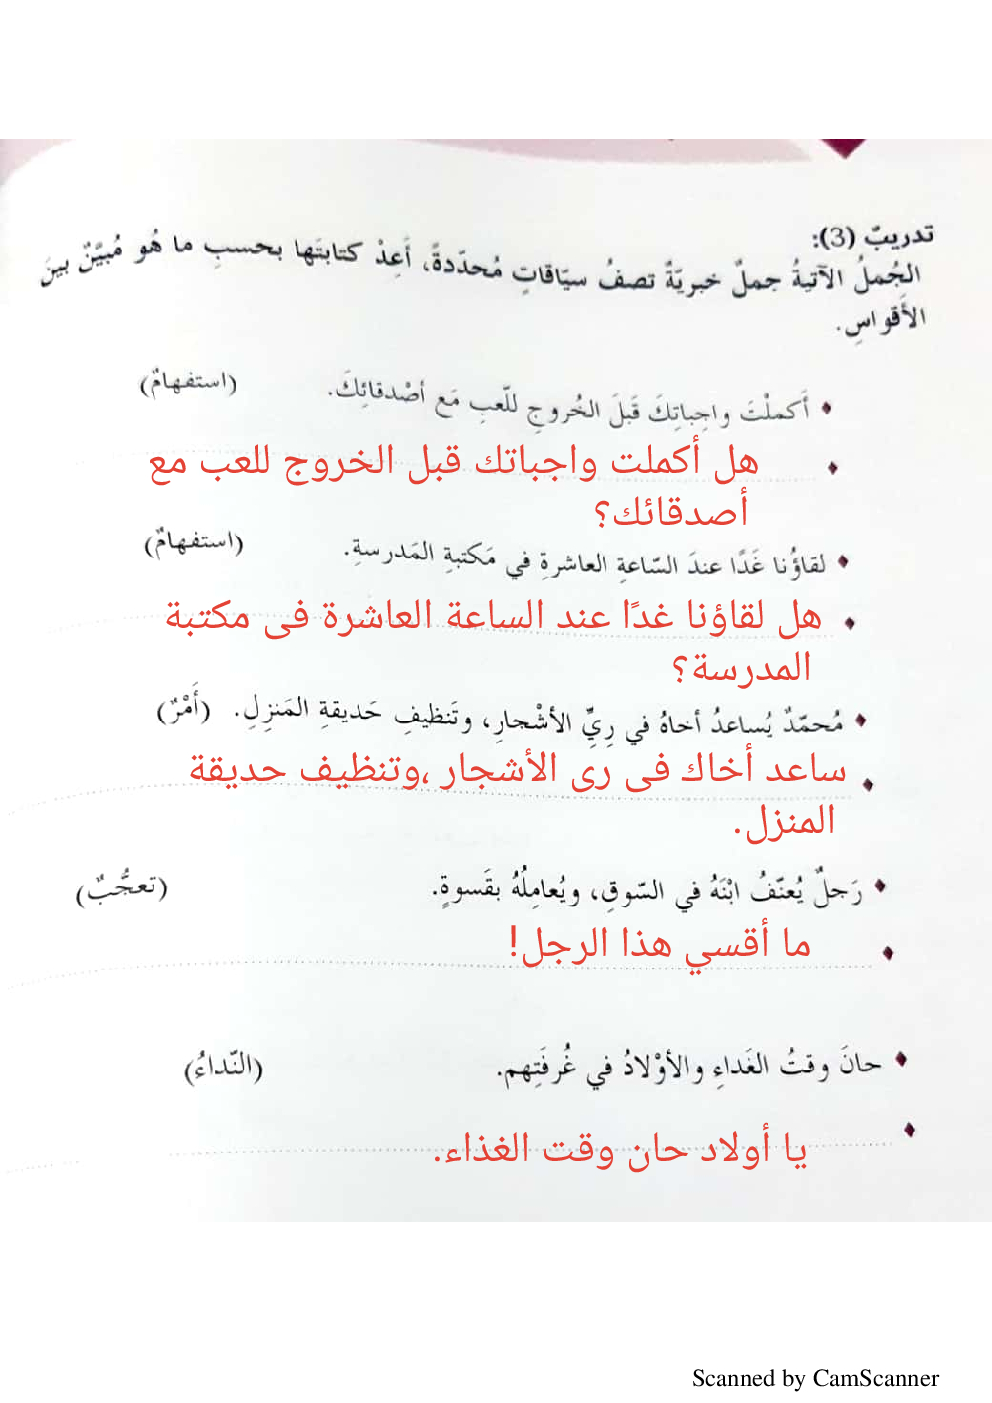 تدريبٌ (3):
الجُملُ الآتيةُ جملٌ خبريّةٌ تصفُ سيّاقاتٍ مُحدّدةً، أَعِدْ كتابتَها بحسبِ ما هُو مُبيَّنٌ بينَ
الأَقواسِ.
أَكملْتَ واجِباتِكَ قَبلَ الخُروجِ للّعبِ مَع أصْدقائِكَ. (استفهامٌ)
هل أكملت واجباتك قبل الخروج للعب مع
أصدقائك؟
لقاؤُنا غَدًا عندَ السّاعةِ العاشرةِ في مَكتبةِ المَدرسةِ. (استفهامٌ)
هل لقاؤنا غدًا عند الساعة العاشرة فى مكتبة
المدرسة؟
مُحمّدٌ يُساعدُ أخاهُ في رِيِّ الأشْجارِ، وتَنظيفِ حَديقةِ المَنزِلِ. (أَمْرٌ)
ساعد أخاك فى رى الأشجار ،وتنظيف حديقة
المنزل.
رَجلٌ يُعنّفُ ابْنَهُ في السّوقِ، ويُعامِلُهُ بقَسوةٍ. (تعجُّبٌ)
ما أقسي هذا الرجل!
حانَ وقتُ الغَداءِ والأوْلادُ في غُرفَتِهم. (النّداءُ)
يا أولاد حان وقت الغذاء.
Scanned by CamScanner